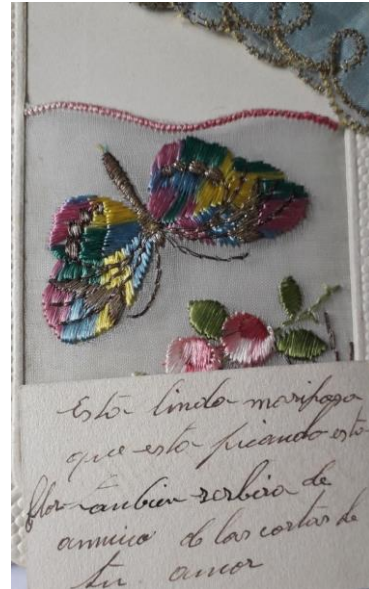 Esta linda mariposa
que esta picando esta
flor tanbien serbira de
annico de las cartas de
tu amor